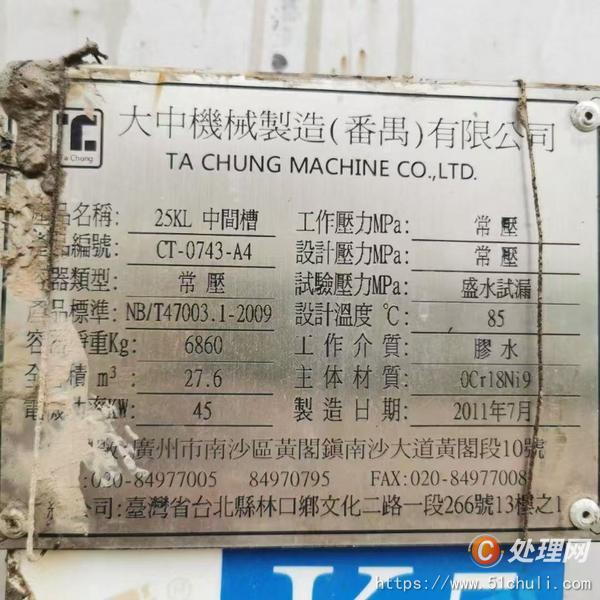 Ta Chung
大中機械製造(番禺)有限公司
TA CHUNG MACHINE CO.,LTD.
產品名稱: 25KL 中間槽 工作壓力MPa: 常壓
產品編號: CT-0743-A4 設計壓力MPa: 常壓
器類型: 常壓 試驗壓力MPa: 盛水試漏
產品標準: NB/T47003.1-2009 設計溫度 ℃: 85
容器重Kg: 6860 工作介質: 膠水
全容積 m³: 27.6 主体材質: 0Cr18Ni9
功率KW: 45 製造日期: 2011年7月
廣州市南沙區黃閣鎮南沙大道黃閣段10號
:020-84977005 84970795 FAX:020-84977008
公司:臺灣省台北縣林口鄉文化二路一段266號13樓之1
C 处理网
https://www.51chuli.com